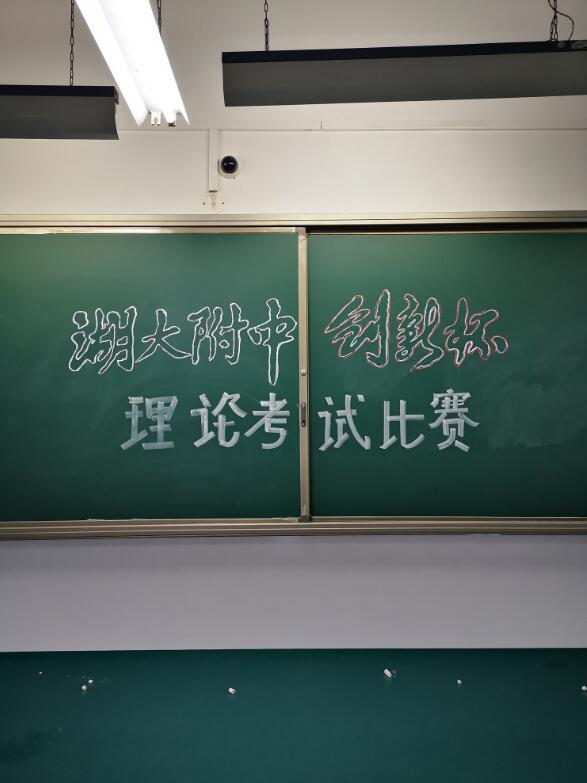 湖大附中 创新杯
理论考试比赛